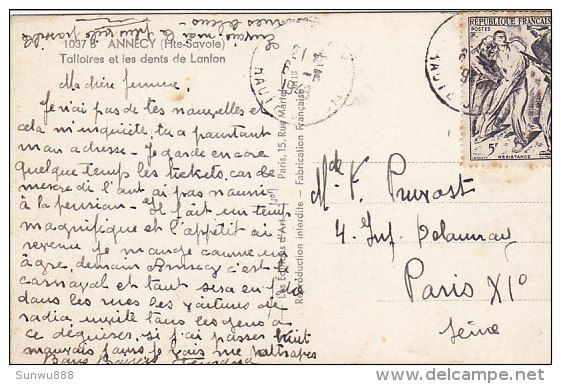 1037 B ANNECY (Hte-Savoie)
Talloires et les dents de Lanfon
Ma chère femme
Je n'ai pas de tes nouvelles et
cela m'inquiète, tu a pourtant
mon adresse. Je garde encore
quelque temps les tickets, car de
mercredi l'on ai pas nourri
à la pension. Il fait un temps
magnifique et l'appétit ai
revenu je mange comme un
ogre, demain Annecy c'est le
carnaval et tout sera en
dans les rues les voitures de
radio invite tous les gens à
ce déguiser, si j'ai passer huit
mauvais jours je vais me rattraper
Bons Baisers
Les Editions d'Art
Paris, 15, Rue Martel
Reproduction interdite - Fabrication Française
REPUBLIQUE FRANÇAISE
POSTES
5F
RESISTANCE
Mde F. Pruvost
4. Imp. Delaunay
Paris XIe
Seine
Sunwu888
delcampe.net